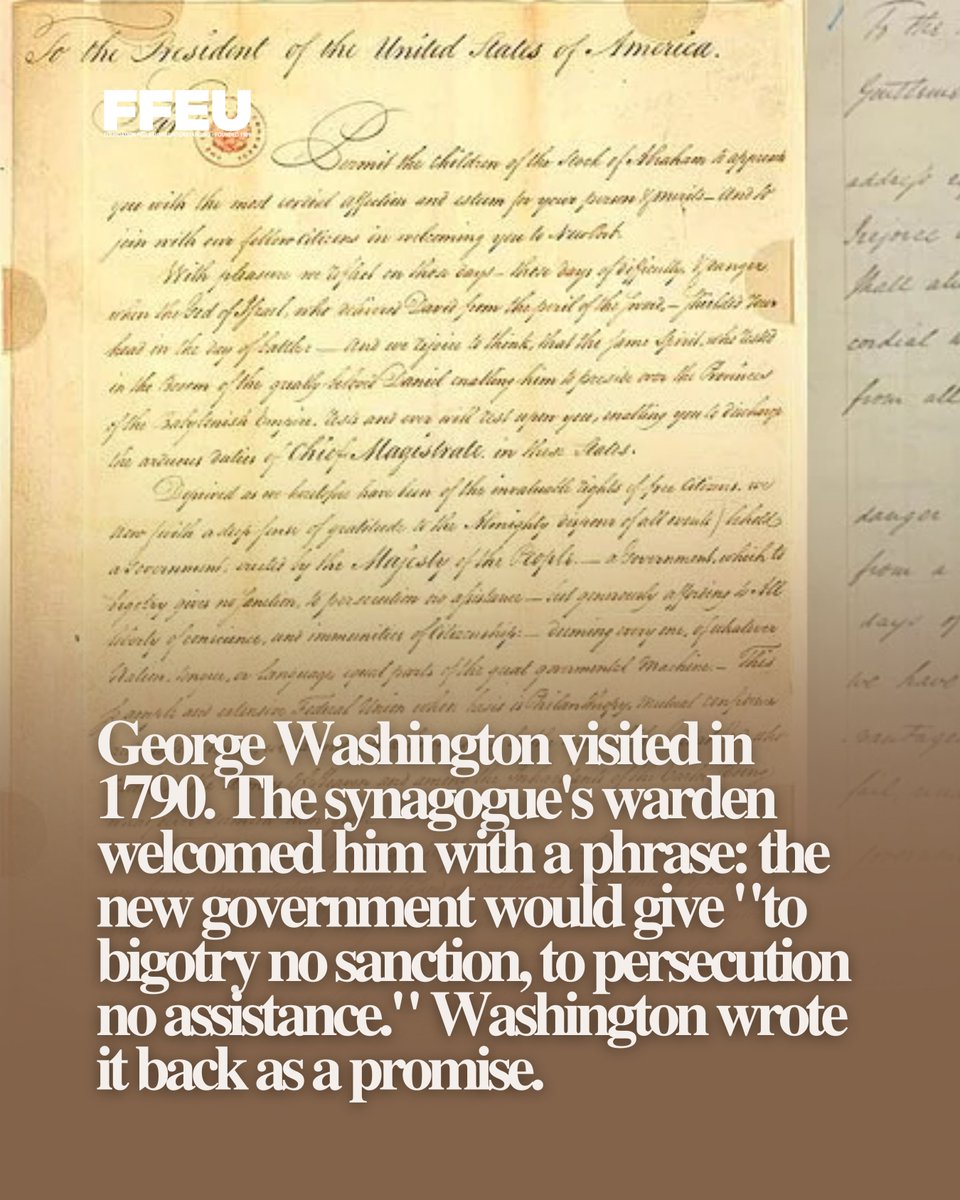 To the President of the United States of America.
FFEU
Sir
Permit the children of the Stock of Abraham to approach
you with the most cordial affection and esteem for your person & merits — And to
join with our fellow Citizens in welcoming you to NewPort.
With pleasure we reflect on those days — those days of difficulty, & danger
when the God of Israel, who delivered David from the peril of the sword, — shielded your
head in the day of battle: — And we rejoice to think, that the same Spirit, who rested
in the Bosom of the greatly beloved Daniel enabling him to preside over the Provinces
of the Babylonish Empire, rests and ever will rest upon you, enabling you to discharge
the arduous duties of Chief Magistrate in these States.
Deprived as we heretofore have been of the invaluable rights of free Citizens, we
now (with a deep sense of gratitude to the Almighty disposer of all events) behold
a Government, erected by the Majesty of the People — a Government, which to
bigotry gives no sanction, to persecution no assistance — but generously affording to All
liberty of conscience, and immunities of Citizenship: — deeming every one, of whatever
Nation, tongue, or language equal parts of the great governmental Machine — This
so ample and extensive Federal Union whose basis is Philanthropy, Mutual confidence
To the
Gentlemen
address
rejoice
shall
cordial
from all
danger
from a
days of
we have
George Washington visited in
1790. The synagogue's warden
welcomed him with a phrase: the
new government would give "to
bigotry no sanction, to persecution
no assistance." Washington wrote
it back as a promise.